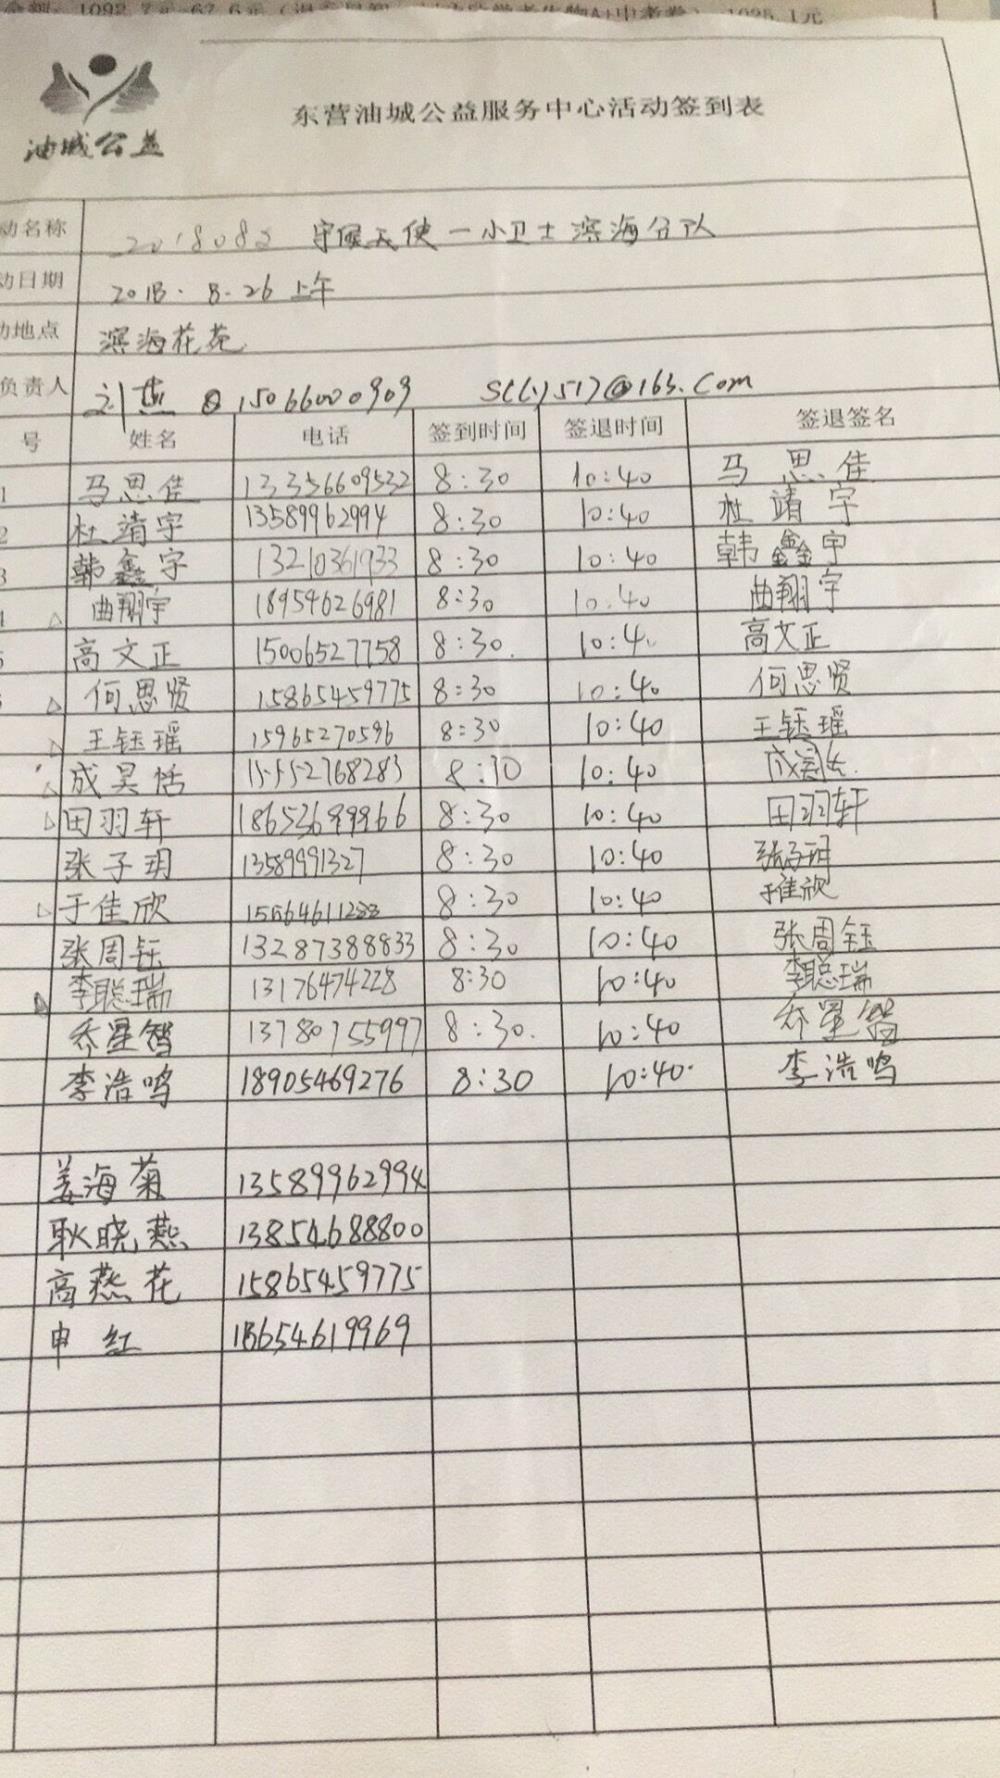 油城公益
东营油城公益服务中心活动签到表
动名称 2018082 守候天使一小卫士滨海分队
动日期 2018.8.26上午
动地点 滨海花苑
负责人 刘燕 15066000909 
号 姓名 电话 签到时间 签退时间 签退签名
1 马思佳 13356609532 8:30 10:40 马思佳
2 杜靖宇 13589962994 8:30 10:40 杜靖宇
3 韩鑫宇 13210361933 8:30 10:40 韩鑫宇
曲翔宇 18954626981 8:30 10.40 曲翔宇
高文正 15006527758 8:30. 10:40 高文正
何思贤 15865459775 8:30 10:40 何思贤
王钰瑶 15965270596 8:30 10:40 王钰瑶
成昊恬 15552768283 8:30 10:40
田羽轩 18653699966 8:30 10:40 田羽轩
张子玥 13589991327 8:30 10:40 张子玥
于佳欣 8:30 10:40 于佳欣
张周钰 13287388833 8:30 10:40 张周钰
李聪瑞 13176474228 8:30 10:40 李聪瑞
乔星智 13780755997 8:30. 10:40 乔星智
李浩鸣 18905469276 8:30 10:40. 李浩鸣
姜海菊 13589962994
耿晓燕 13854688800
高燕花 15865459775
申红 18654619969